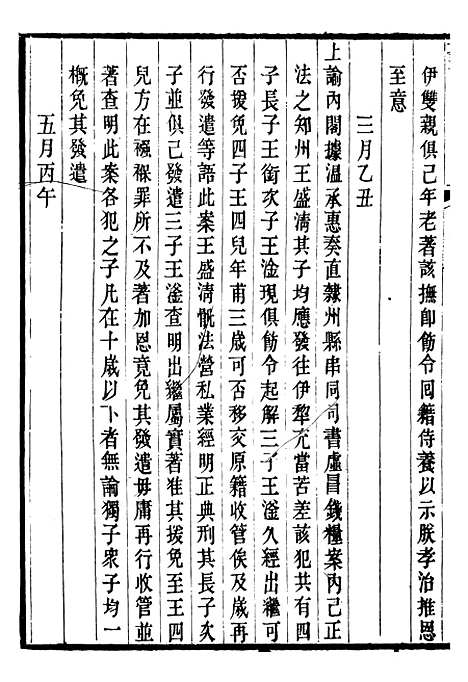 伊雙親俱已年老著該撫卽飭令回籍侍養以示朕孝治推恩
至意
三月乙丑
上諭內閣據溫承惠奏直隸州縣串同司書虛冒錢糧案內已正
法之知州王盛清其子均應發往伊犂充當苦差該犯共有四
子長子王銜次子王淦現俱飭令起解三子王滏久經出繼可
否援免四子王四兒年甫三歲可否移交原籍收管俟及歲再
行發遣等語此案王盛清骩法營私業經明正典刑其長子次
子並俱已發遣三子王滏查明出繼屬實著准其援免至王四
兒方在襁褓罪所不及著加恩竟免其發遣毋庸再行收管並
著查明此案各犯之子凡在十歲以下者無論獨子衆子均一
槪免其發遣
五月丙午